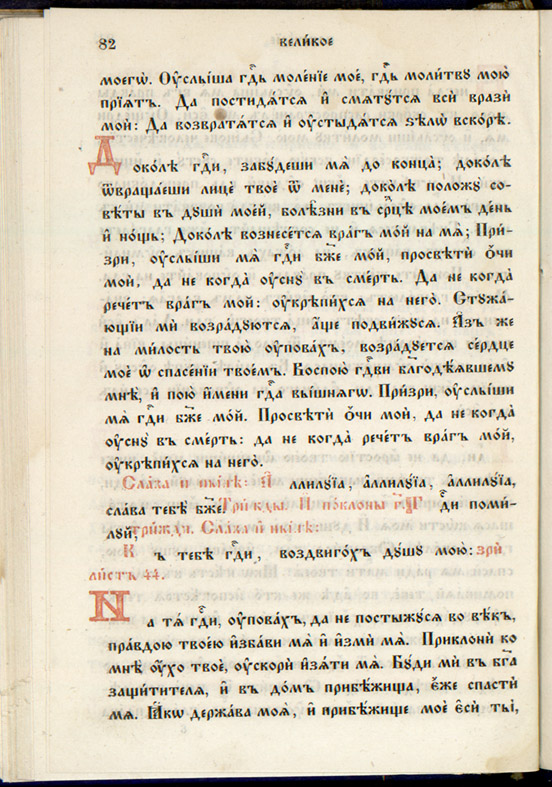 82 вели́кое
моегѡ̀. Оу҆слы́ша гдⷭ҇ь моле́нїе моѐ, гдⷭ҇ь моли́твꙋ мою̀
прїѧ́тъ. Да постидѧ́тсѧ и҆ смѧтꙋ́тсѧ всѝ вразѝ
мои̑: Да возвратѧ́тсѧ и҆ оу҆стыдѧ́тсѧ ѕѣлѡ̀ вско́рѣ.
Доко́лѣ гдⷭ҇и, забꙋ́деши мѧ̀ до конца̀; доко́лѣ
ѿвраща́еши лицѐ твоѐ ѿ менѐ; доко́лѣ положꙋ̀ со-
вѣ́ты въ дꙋшѝ мое́й, болѣ̑зни въ срⷣцѣ мое́мъ де́нь
и҆ но́щь; Доко́лѣ вознесе́тсѧ вра́гъ мо́й на мѧ̀; При́-
зри, оу҆слы́ши мѧ̀ гдⷭ҇и бж҃е мо́й, просвѣтѝ ѻ҆́чи
моѝ, да не когда̀ оу҆снꙋ̀ въ сме́рть. Да не когда̀
рече́тъ вра́гъ мо́й: оу҆крѣпи́хсѧ на него̀. Стꙋжа́-
ющїи мѝ возра́дꙋютсѧ, а҆́ще подви́жꙋсѧ. А҆́зъ же
на ми́лость твою̀ оу҆пова́хъ, возра́дꙋетсѧ се́рдце
моѐ ѡ҆ спасе́нїи твое́мъ. Воспою̀ гдⷭ҇ви бл҃годѣ́ѧвшемꙋ
мнѣ̀, и҆ пою̀ и҆́мени гдⷭ҇а вы́шнѧгѡ. При́зри, оу҆слы́ши
мѧ̀ гдⷭ҇и бж҃е мо́й. Просвѣтѝ ѻ҆́чи моѝ, да не когда̀
оу҆снꙋ̀ въ сме́рть: да не когда̀ рече́тъ вра́гъ мо́й,
оу҆крѣпи́хсѧ на него̀.
Сла́ва и҆ ны́нѣ: А҆ллилꙋ́їа, а҆ллилꙋ́їа, а҆ллилꙋ́їа,
сла́ва тебѣ̀ бж҃е. Три́жды. И҆ покло́ны г҃. Гдⷭ҇и поми́-
лꙋй, три́жды. Сла́ва и҆ ны́нѣ:
Къ тебѣ̀ гдⷭ҇и, воздвиго́хъ дꙋ́шꙋ мою̀: зрѝ
ли́стъ 44.
На тѧ̀ гдⷭ҇и, оу҆пова́хъ, да не постыжꙋ́сѧ во вѣ́къ,
пра́вдою твое́ю и҆зба́ви мѧ̀ и҆ и҆змѝ мѧ̀. Приклонѝ ко
мнѣ̀ оу҆́хо твоѐ, оу҆скорѝ и҆зѧ́ти мѧ̀. Бꙋ́ди мѝ въ бг҃а
защи́тителѧ, и҆ въ до́мъ прибѣ́жища, є҆́же спастѝ
мѧ̀. Ꙗ҆́кѡ держа́ва моѧ̀, и҆ прибѣ́жище моѐ є҆сѝ ты̀,